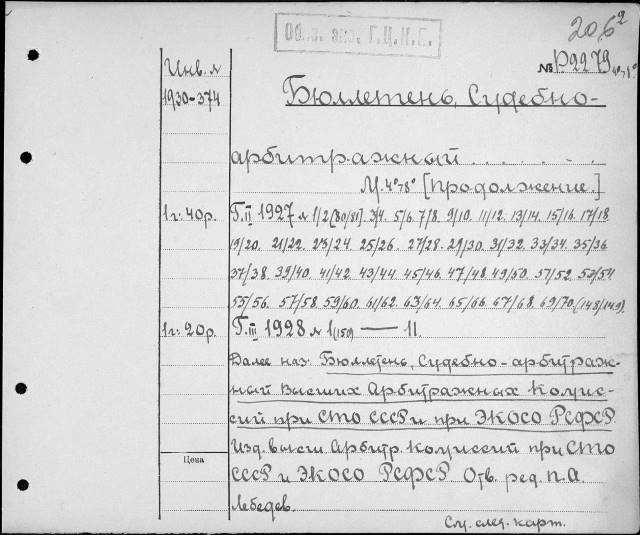 206²
Обяз. экз. Г.Ц.К.П.
№ Р2279 4°,8°
Инв. №
1930-374
Бюллетень, Судебно-
арбитражный . . . . . . .
М. 4°,8° [Продолжение.]
1 г: 40р. Г. II 1927 № 1/2 [80/81]. 3/4. 5/6. 7/8. 9/10. 11/12. 13/14. 15/16. 17/18.
19/20. 21/22. 23/24. 25/26. 27/28. 29/30. 31/32. 33/34. 35/36
37/38. 39/40. 41/42. 43/44. 45/46. 47/48. 49/50. 51/52. 53/54
55/56. 57/58. 59/60. 61/62. 63/64. 65/66. 67/68. 69/70 (148/149).
1 г: 20р. Г. III 1928 № 1 (150) — 11.
Далее наз: Бюллетень, Судебно-арбитраж-
ный Высших Арбитражных Комис-
сий при СТО СССР и при ЭКОСО РСФСР.
Изд. высш. Арбитр. Комиссий при СТО
Цена
СССР и ЭКОСО РСФСР. Отв. ред. П. А.
Лебедев.
См. след. карт.